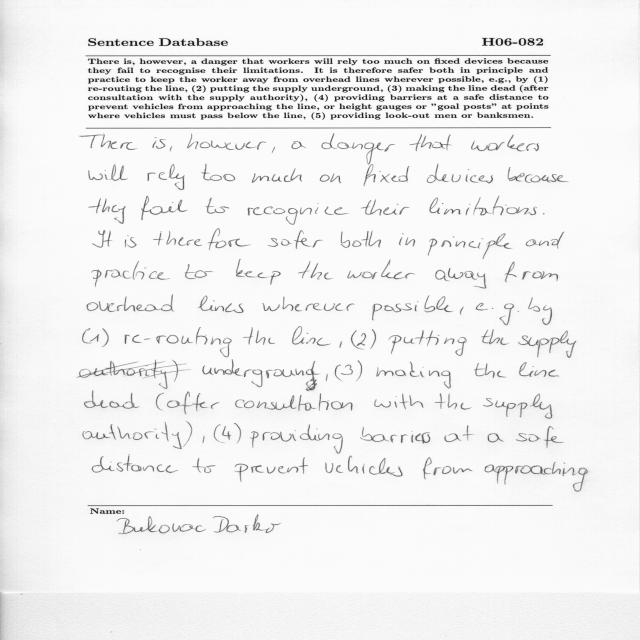 Sentence Database H06-082
There is, however, a danger that workers will rely too much on fixed devices because
they fail to recognise their limitations. It is therefore safer both in principle and
practice to keep the worker away from overhead lines wherever possible, e.g., by (1)
re-routing the line, (2) putting the supply underground, (3) making the line dead (after
consultation with the supply authority), (4) providing barriers at a safe distance to
prevent vehicles from approaching the line, or height gauges or "goal posts" at points
where vehicles must pass below the line, (5) providing look-out men or banksmen.
There is, however, a danger that workers
will rely too much on fixed devices because
they fail to recognice their limitations.
It is therefore safer both in principle and
practice to keep the worker away from
overhead lines wherever possible, e.g. by
(1) re-routing the line, (2) putting the supply
authority) underground, (3) making the line
dead (after consultation with the supply
authority), (4) providing barries at a safe
distance to prevent vehicles from approaching
Name:
Bukovac Darko